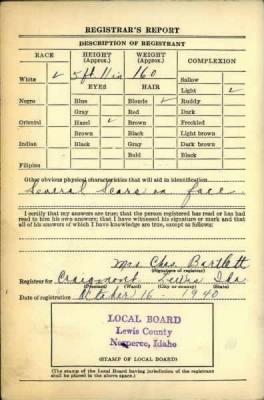 REGISTRAR'S REPORT
DESCRIPTION OF REGISTRANT
RACE HEIGHT (Approx.) WEIGHT (Approx.) COMPLEXION
White ✓ 5 ft 11 in 160 Sallow
EYES HAIR Light ✓
Negro Blue Blonde ✓ Ruddy
Gray Red Dark
Oriental Hazel ✓ Brown Freckled
Brown Black Light brown
Indian Black Gray Dark brown
Bald Black
Filipino
Other obvious physical characteristics that will aid in identification
Several Scars on face
I certify that my answers are true; that the person registered has read or has had
read to him his own answers; that I have witnessed his signature or mark and that
all of his answers of which I have knowledge are true, except as follows:
Mrs Chas. Bartlett
(Signature of registrar)
Registrar for Craigmont Lewis Ida
(Precinct) (Ward) (City or county) (State)
Date of registration October 16 - 1940
LOCAL BOARD
Lewis County
Nezperce, Idaho
(STAMP OF LOCAL BOARD)
(The stamp of the Local Board having jurisdiction of the registrant
shall be placed in the above space.)